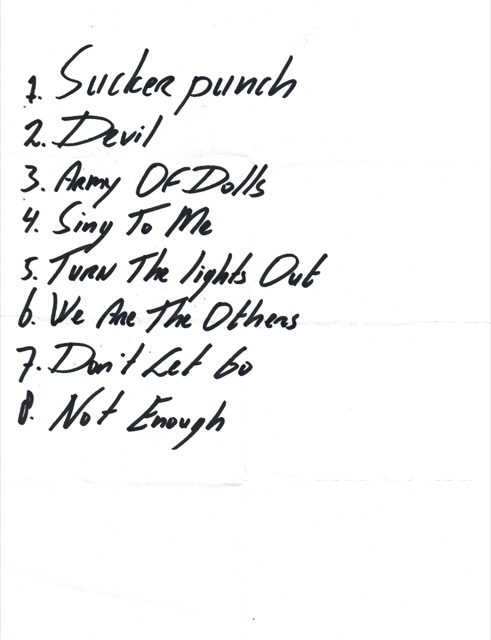 1. Sucker punch
2. Devil
3. Army Of Dolls
4. Sing To Me
5. Turn The lights Out
6. We Are The Others
7. Don't Let Go
8. Not Enough